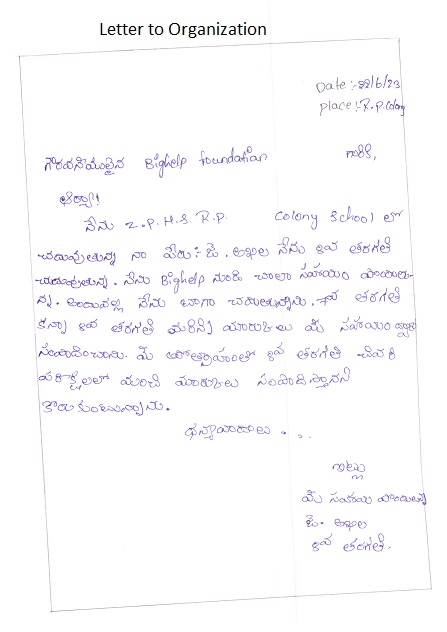 Letter to Organization
Date :- 22/6/23
place :- R.P. Colony
గౌరవనీయులైన Bighelp foundation గారికి,
ఆర్యా!
నేను Z.P.H.S. R.P. Colony School లో
చదువుతున్న నా పేరు :- ఓ. అఖిల నేను 8వ తరగతి
చదువుతున్న. నేను Bighelp నుండి చాలా సహాయం పొందుతు
న్న. అందువల్ల నేను బాగా చదువుతున్నాను. 7వ తరగతి
కన్నా 8వ తరగతి మార్కులు మీ సహాయం ద్వారా
సంపాదించాను. మీ ప్రోత్సాహంతో 8వ తరగతి చివరి
పరీక్షలలో మంచి మార్కులు సంపాదిస్తానని
కోరుకుంటున్నాను.
ధన్యవాదాలు . . .
ఇట్లు
మీ సహాయ పొందుతున్న
ఓ. అఖిల
8వ తరగతి.